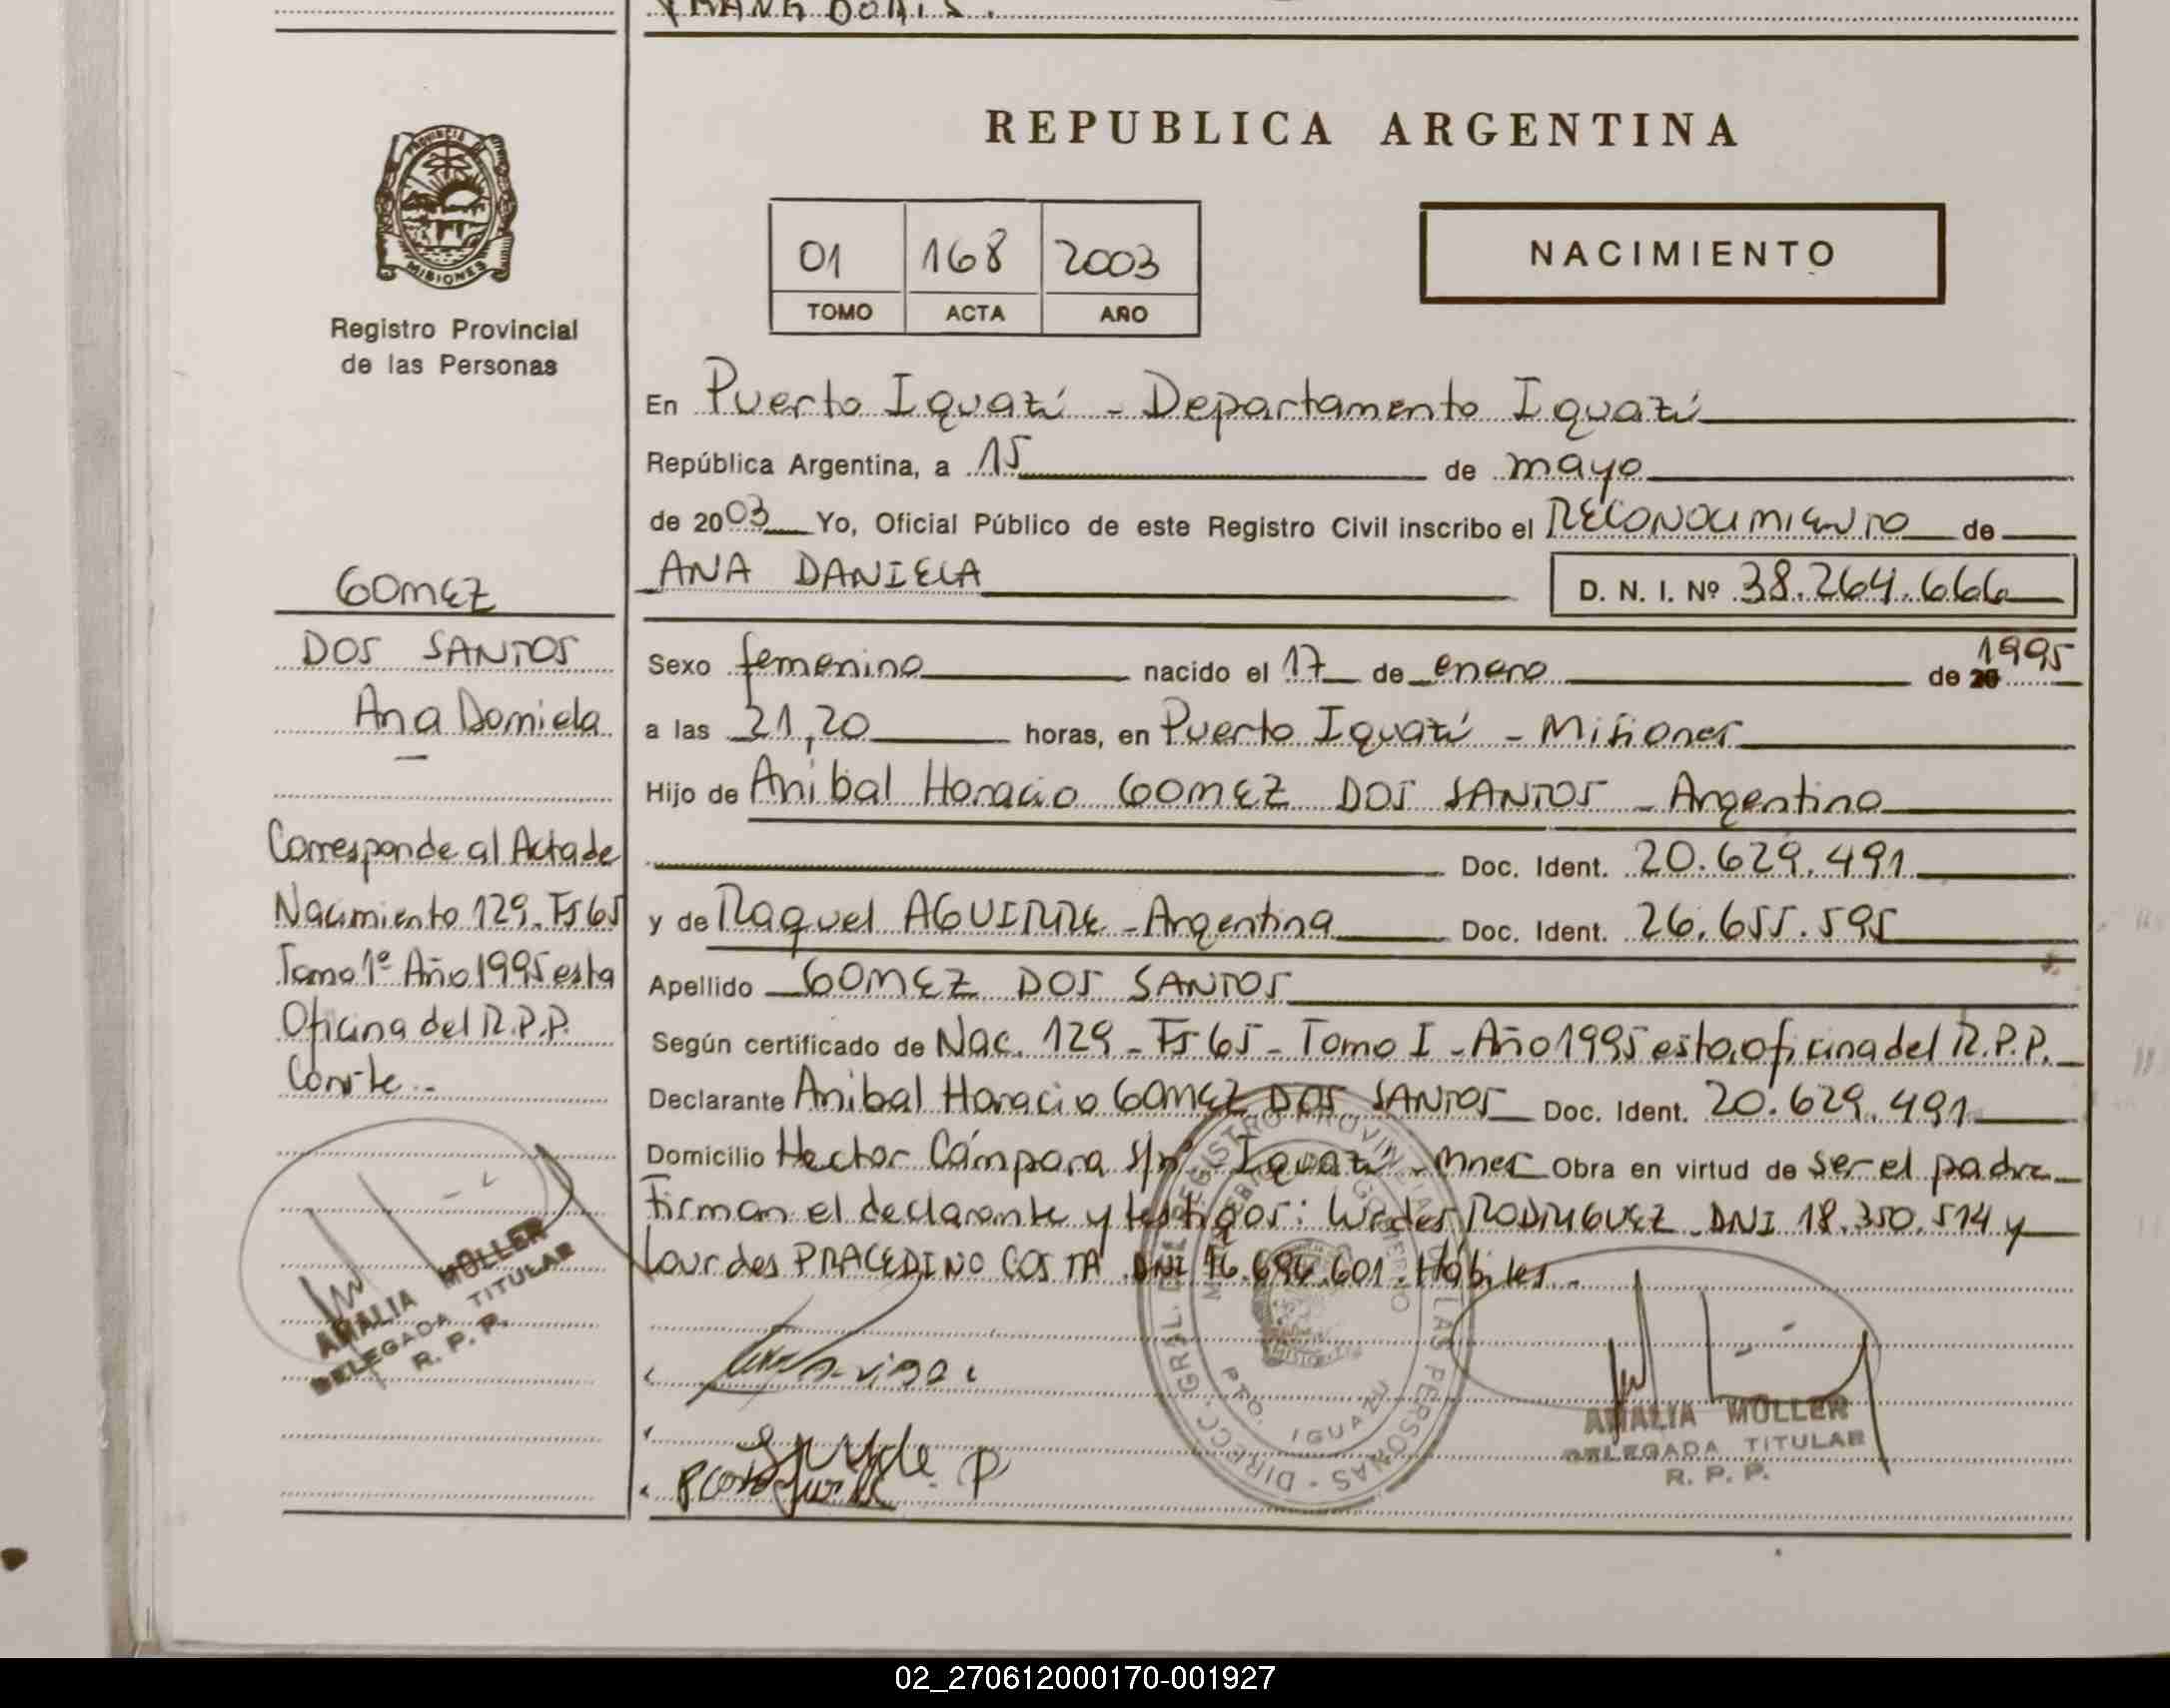 REPUBLICA ARGENTINA
PROVINCIA DE
MISIONES
Registro Provincial
de las Personas
01 168 2003
TOMO ACTA AÑO
NACIMIENTO
En Puerto Iguazú - Departamento Iguazú
República Argentina, a 15 de mayo
de 2003 Yo, Oficial Público de este Registro Civil inscribo el RECONOCIMIENTO de
ANA DANIELA D. N. I. Nº 38.264.666
Sexo femenino nacido el 17 de enero de 20 1995
a las 21,20 horas, en Puerto Iguazú - Misiones
Hijo de Anibal Horacio GOMEZ DOS SANTOS - Argentino
Doc. Ident. 20.629.491
y de Raquel AGUIRRE - Argentina Doc. Ident. 26.655.595
Apellido GOMEZ DOS SANTOS
Según certificado de Nac. 129 - Fs 65 - Tomo I - Año 1995 esta oficina del R.P.P.
Declarante Anibal Horacio GOMEZ DOS SANTOS Doc. Ident. 20.629.491
Domicilio Hector Cámpora s/nº - Iguazú - Mnes Obra en virtud de ser el padre
Firman el declarante y testigos: Lurdes RODRIGUEZ DNI 18.350.514 y
Lourdes PRACEDINO COSTA DNI 16.696.601. Hábiles.-
GOMEZ
DOS SANTOS
Ana Daniela
Corresponde al Acta de
Nacimiento 129. Fs 65
Tomo 1º Año 1995 esta
Oficina del R.P.P.
Conste.-
AMALIA MOLLER
DELEGADA TITULAR
R. P. P.
DIRECC. GRAL. DEL REGISTRO PROVINCIAL DE LAS PERSONAS
GOBIERNO
PTO. IGUAZU
AMALIA MOLLER
DELEGADA TITULAR
R. P. P.
02_270612000170-001927